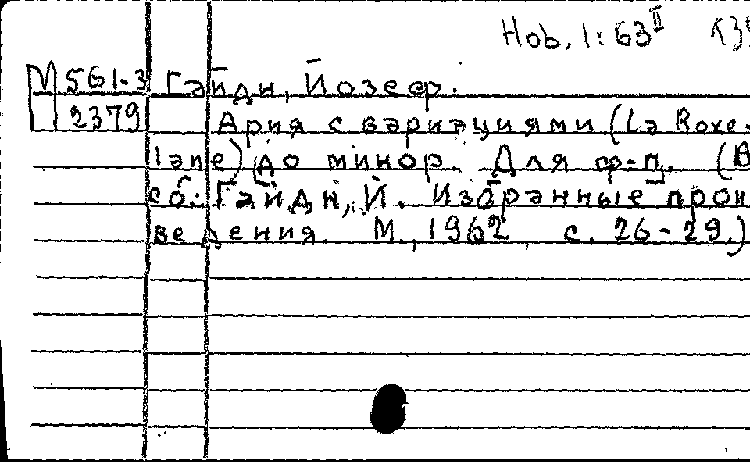 Hob. I: 63 II
М 561-3 Гайдн, Йозеф.
2379 Ария с вариациями (La Roxe-
lane) до минор. Для ф-п. (В
сб.: Гайдн, Й. Избранные произ
ведения. М., 1962 с. 26-29.)